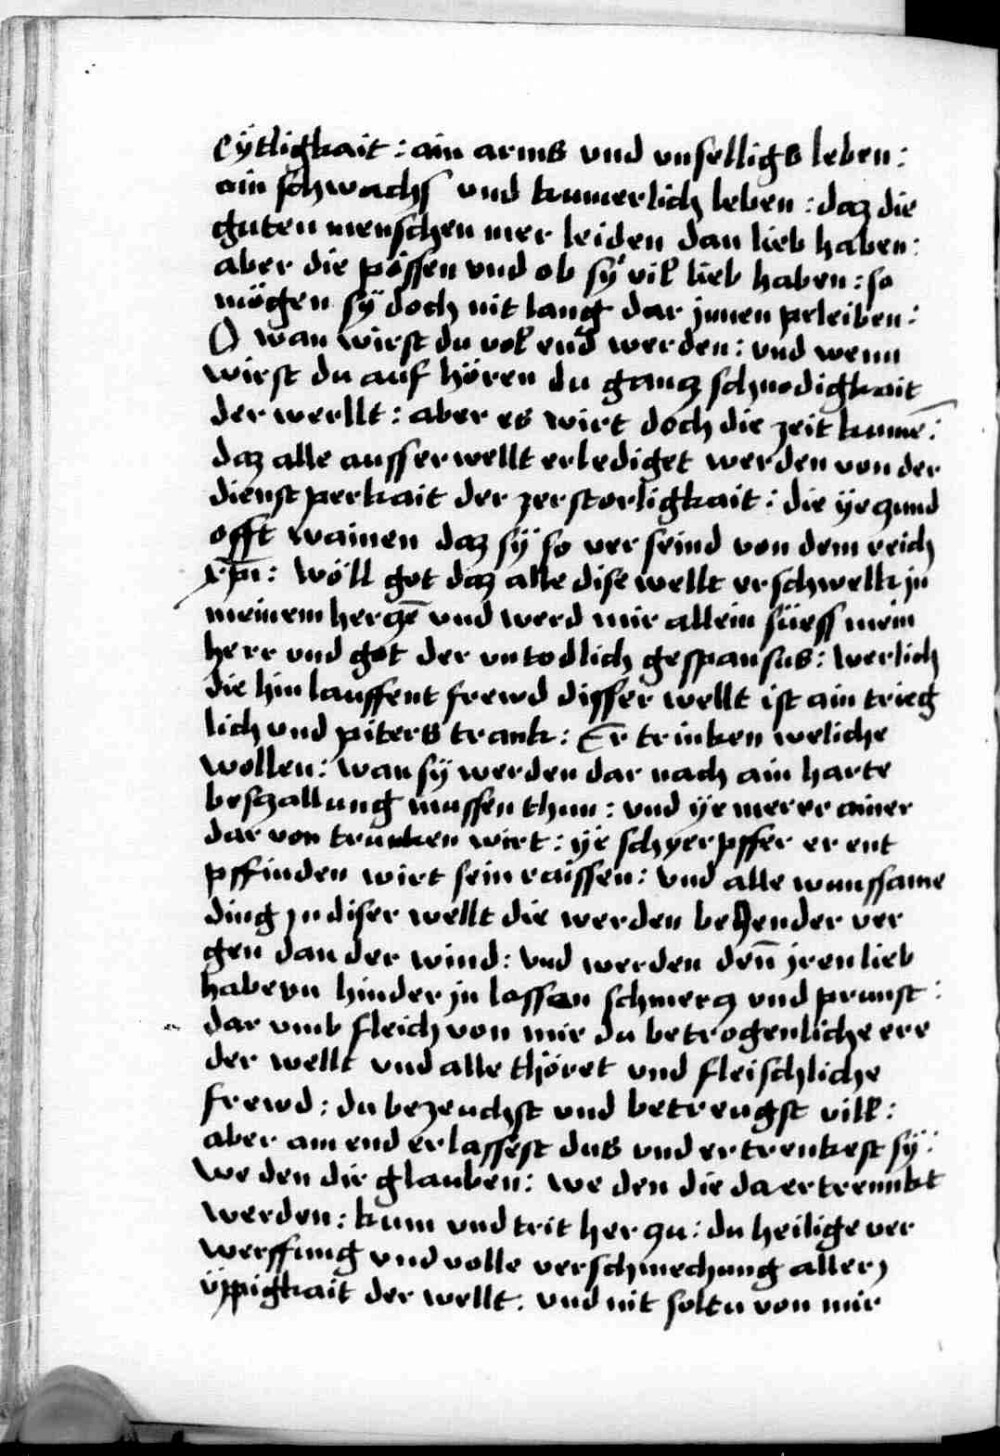 eÿtligkait : ain arms vnd vnselligs leben :
ain schwachs vnd kumerlich leben : daz die
guten menschen mer leiden dan lieb haben :
aber die pössen vnd ob sÿ vil lieb haben : so
mögen sÿ doch nit lang dar jnnen peleiben :
O wan wirst du vol end werden : vnd wenn
wirst du auf hören du gancz schnodigkait
der werllt : aber es wirt doch die zeit kumē :
daz alle ausserwellt erlediget werden von der
dienstperkait der zerstorligkait : die ÿeczund
offt wainen daz sÿ so ver seind von dem reich
xp̄i : wöll got daz alle dise wellt erschwelk jn
meinem herczē vnd werd mir allein süess mein
herr vnd got der vntodlich gespansus : werlich
die hin lauffent frewd disser wellt ist ain trieg
lich vnd piters trank : Er trinken weliche
wollen : wan sÿ werden dar nach ain harte
beczallung mussen thun : vnd ÿe merer ainer
dar von trunken wirt : ÿe schyerpffer er ent
pffinden wirt sein raissen : vnd alle wunssame
ding jn diser wellt die werden behender ver
gen dan der wind : vnd werden den̄ jren lieb
habern hinder jn lassen schmercz vnd prunst :
dar vmb fleich von mir du betrogenliche err
der wellt vnd alle thöret vnd fleischliche
frewd : du bezeuchst vnd betreugst vill :
aber am end erlassest dus vnd ertrenkest sÿ :
we den die glauben : we den die da ertrennkt
werden : kum vnd trit her zu : du heilige ver
werffung vnd volle verschmechung aller
üppigkait der wellt . vnd nit soltu von mir